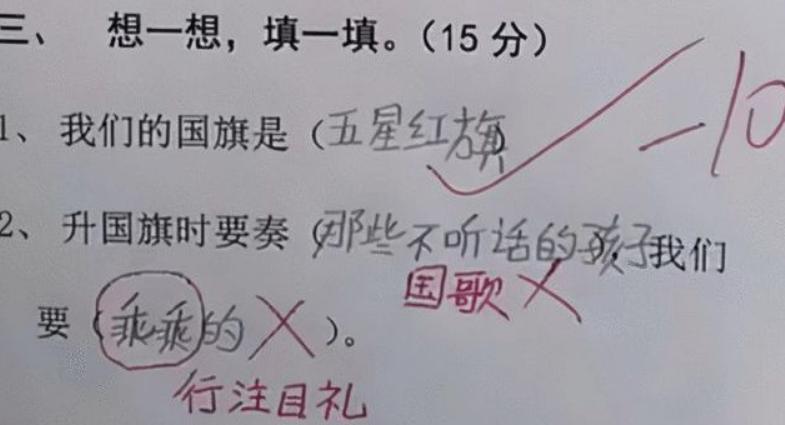 三、 想一想，填一填。（15 分）
-10
1、我们的国旗是（五星红旗）
2、升国旗时要奏（那些不听话的孩子），我们
国歌 ×
要（乖乖的 ×）。
行注目礼